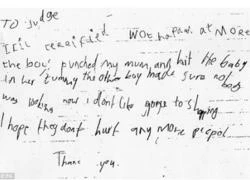 TO Judge
I ell terrified WOT hapand AT MORE
the boy punched my mum and hit the baby
in her tummy the other boy made sure no boy
was now i dont like going to shopping
I hope they dont hurt any more pepol
Thank you.